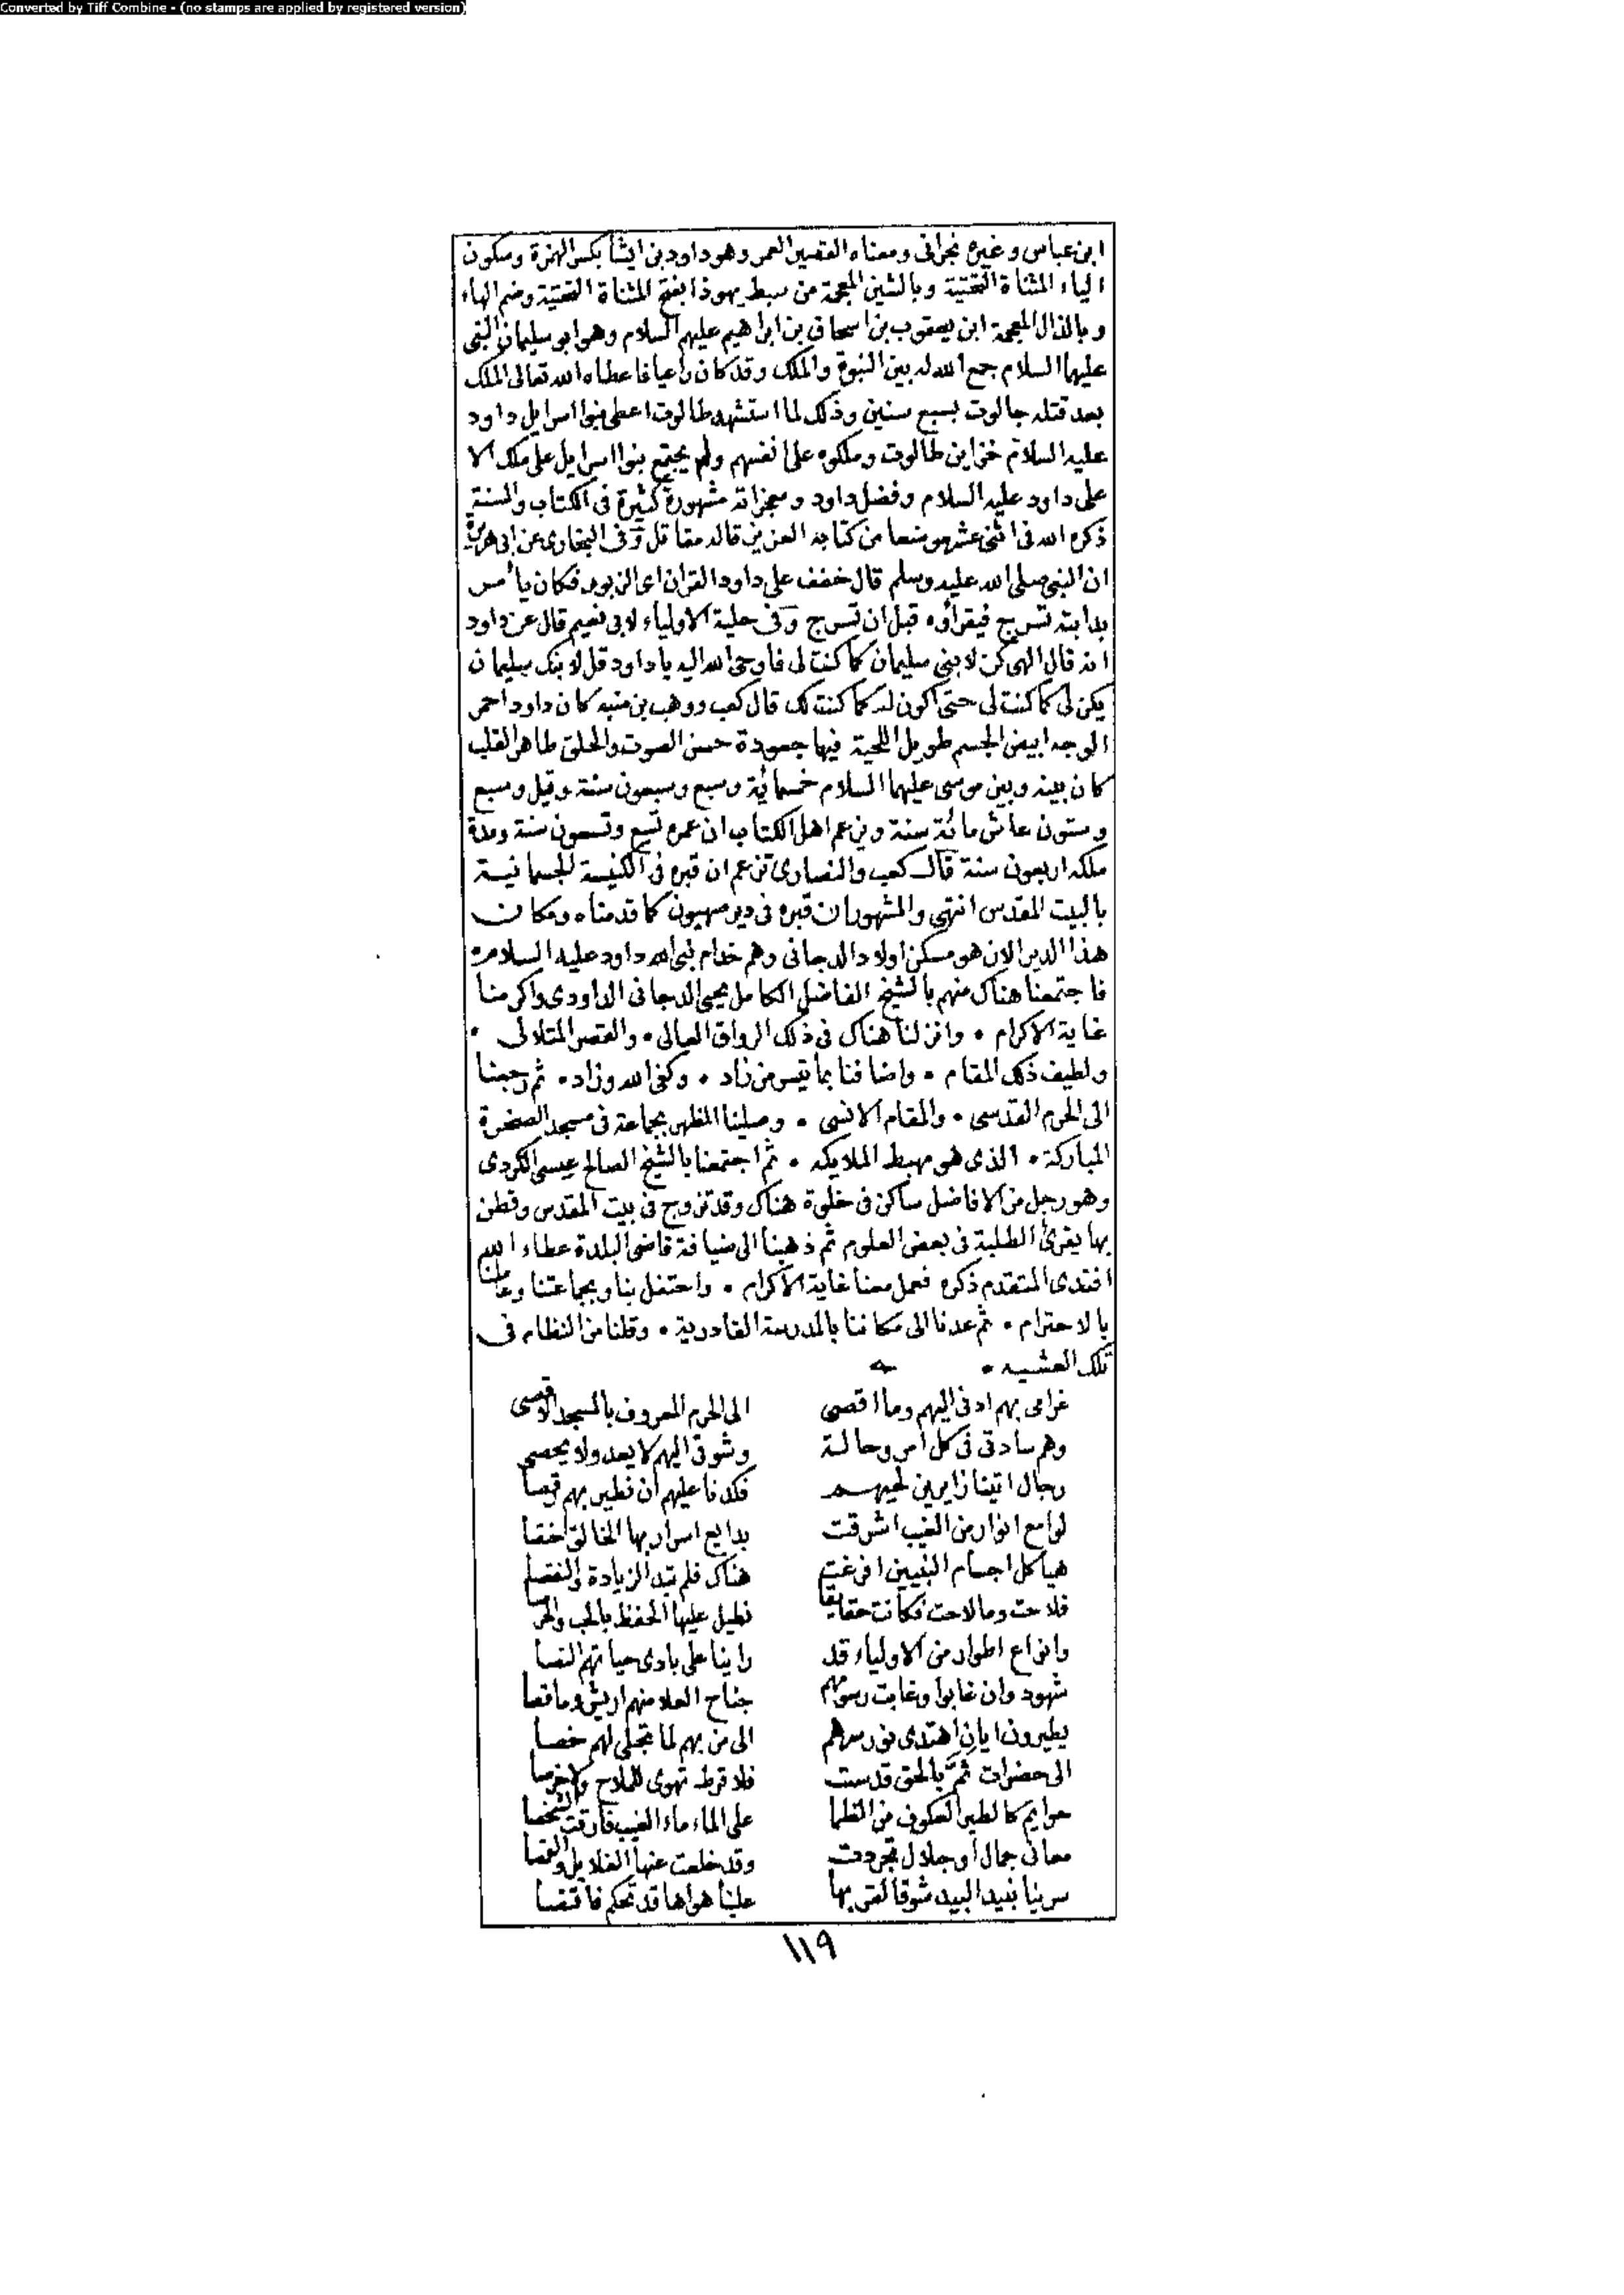 Converted by Tiff Combine - (no stamps are applied by registered version)
ابن عباس وغيره نجرانى ومعناه القصير العمر وهو داود بن ايشا بكسر الهمزة وسكون
الياء المثناة التحتية وبالشين المعجمة من سبط يهوذا بفتح المثناة التحتية وضم الهاء
وبالذال المعجمة ابن يعقوب بن اسحاق بن ابراهيم عليهم السلام وهو ابو سليمان النبى
عليهما السلام جمع الله له بين النبوة والملك وقد كان راعيا فاعطاه الله تعالى الملك
بعد قتله جالوت بسبع سنين وذلك لما استشهد طالوت اعطى بنوا اسرايل داود
عليه السلام خزاين طالوت وملكوه على انفسهم ولم يجتمع بنوا اسرايل على ملك الا
على داود عليه السلام وفضل داود ومعجزاته مشهورة كثيرة فى الكتاب والسنة
ذكره الله فى اثنى عشر موضعا من كتابه العزيز قاله مقاتل وفى البخارى عن ابى هريرة
ان النبى صلى الله عليه وسلم قال خفف على داود القران اى الزبور فكان يأمر
بدابته تسرج فيقرأوه قبل ان تسرج وفى حلية الاولياء لابى نعيم قال عن داود
انه قال الهى كن لابنى سليمان كما كنت لى فاوحى الله اليه يا داود قل لابنك سليمان
يكن لى كما كنت لى حتى اكون له كما كنت لك قال كعب ووهب بن منبه كان داود احمر
الوجه ابيض الجسم طويل اللحية فيها جعودة حسن الصوت والخلق طاهر القلب
كان بينه وبين موسى عليهما السلام خمسمائة وسبع وسبعون سنة وقيل وسبع
وستون عاش مائة سنة ويزعم اهل الكتاب ان عمره تسع وتسعون سنة ومدة
ملكه اربعون سنة قال كعب والنصارى تزعم ان قبره فى الكنيسة الجسمانية
بالبيت المقدس انتهى والمشهور ان قبره فى دير صهيون كما قدمناه ومكان
هذا الدير الان هو مسكن اولاد الدجانى وهم خدام نبى الله داود عليه السلام
فاجتمعنا هناك منهم بالشيخ الفاضل الكامل يحيى الدجانى الداودى واكرمنا
غاية الاكرام • وانزلنا هناك فى ذلك الرواق العالى • والقصر المتلالى •
ولطيف ذلك المقام • واضافنا بما تيسر من زاد • وكفى الله وزاد • ثم رجعنا
الى الحرم القدسى • والمقام الانسى • وصلينا الظهر بجماعة فى مسجد الصخرة
المباركة • الذى هو مهبط الملايكه • ثم اجتمعنا بالشيخ الصالح عيسى الكردى
وهو رجل من الافاضل ساكن فى خلوة هناك وقد تزوج فى بيت المقدس وقطن
بها يقرئ الطلبة فى بعض العلوم ثم ذهبنا الى ضيافة قاضى البلدة عطاء الله
افندى المتقدم ذكره فعمل معنا غاية الاكرام • واحتفل بنا وبجماعتنا وعاملنا
بالاحترام • ثم عدنا الى مكاننا بالمدرسة القادرية • وقلنا من النظام فى
تلك العشيه •
غرامى بهم ادنى اليهم وما اقصى الى الحرم المعروف بالمسجد الاقصى
وهم سادتى فى كل امر وحالة وشوقى اليهم لا يعد ولا يحصى
رجال اتينا زايرين لحيهم فكدنا عليهم ان نطير بهم
لوامع انوار من الغيب اشرقت بدايع اسرار بها الخالق اختصا
هياكل اجسام النبيين افرغت هناك فلم تبد الزيادة والنقصا
فلاحت وما لاحت فكانت حقايقا نطيل عليها الحفظ بالحب والحرصا
وانواع اطوار من الاولياء قد راينا على بادى حياتهم النصا
شهود وان غابوا وغابت رسومهم جناح العلا منهم اريش وما قصا
يطيرون ايان اهتدى نور سرهم الى من بهم لما تجلى لهم خصا
الى حضرات ثمَّ بالحق قدست فلا قرط تهوى للملاح ولا خرصا
حوايم كالطير العكوف من الظما على الماء ماء الغيب فارقت الشخصا
معانى جمال او جلال تجردت وقد خلعت عنها الغلايل والقمصا
سرينا بفيد البيد شوقا لقربها علينا هواها قد تحكم فاقتصا
١١٩